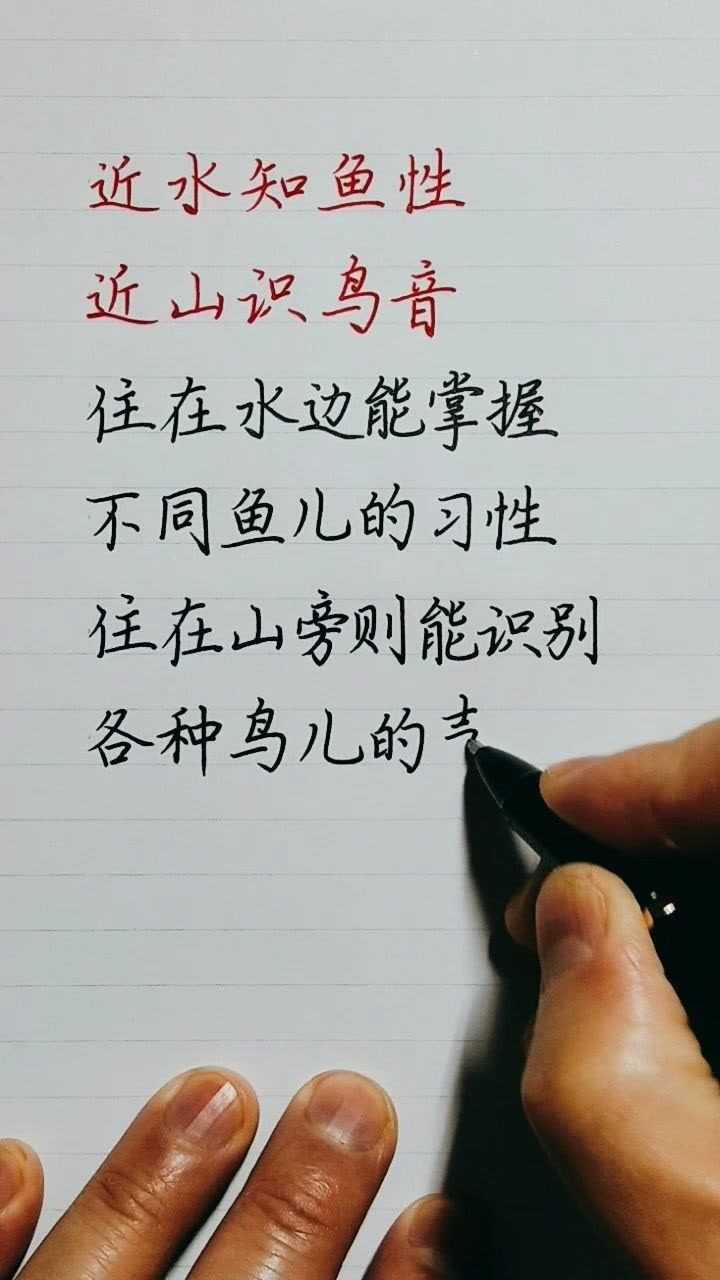 近水知鱼性
近山识鸟音
住在水边能掌握
不同鱼儿的习性
住在山旁则能识别
各种鸟儿的